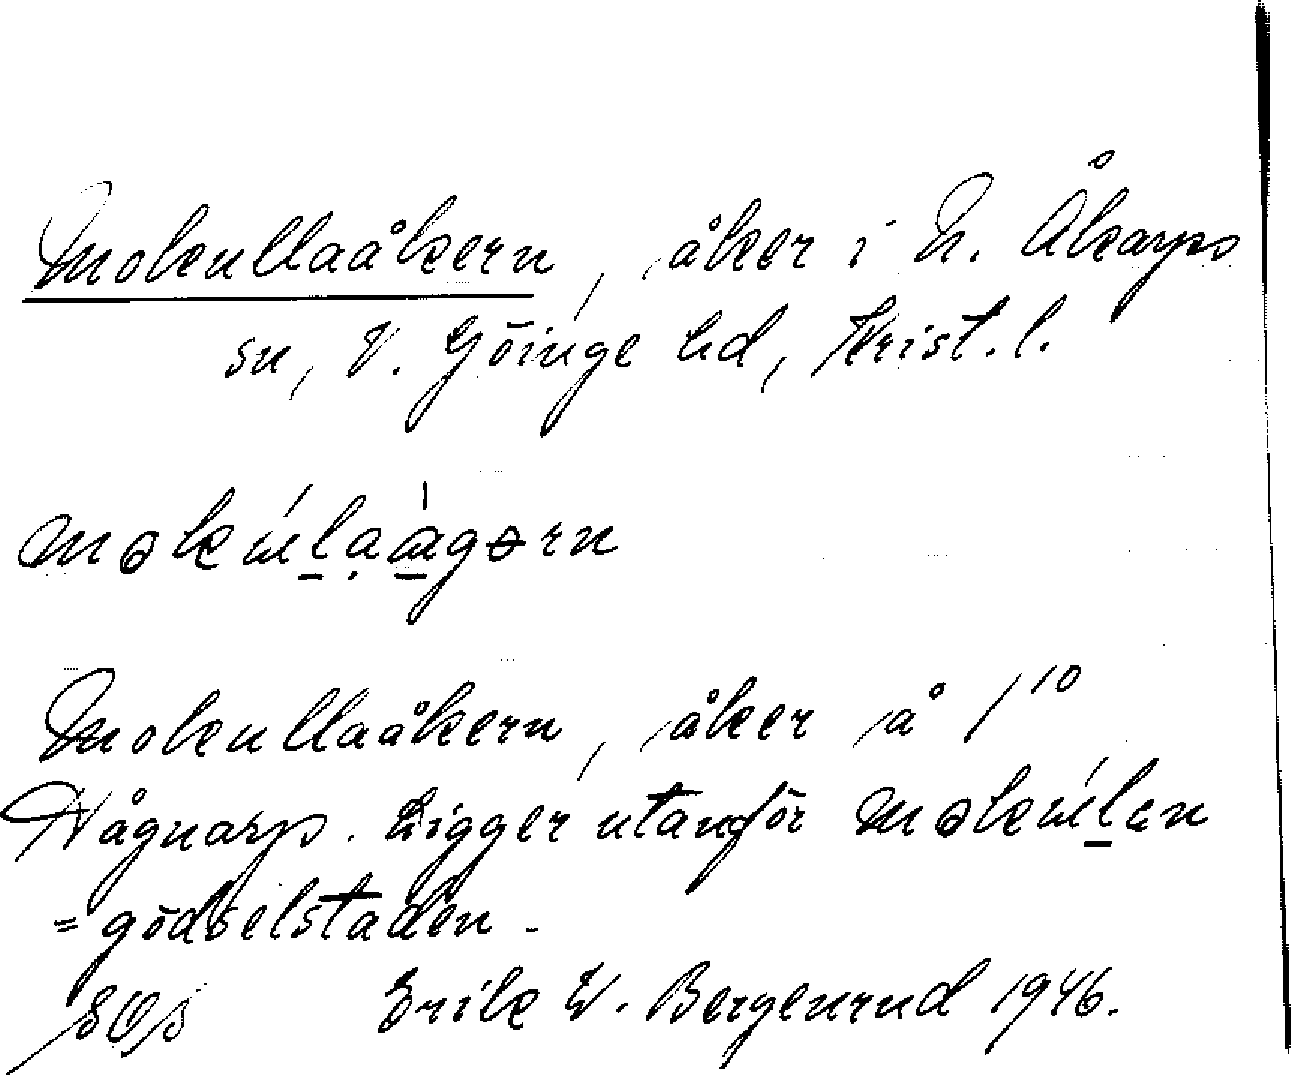 Mokullaåkern, åker i N. Åkarps
sn, V. Göinge hd, Krist. l.
Mokullaåkern, åker å 1¹⁰
Vågnarp. Ligger utanför
= gödselstaden.
Erik W. Bergenrud 1946.